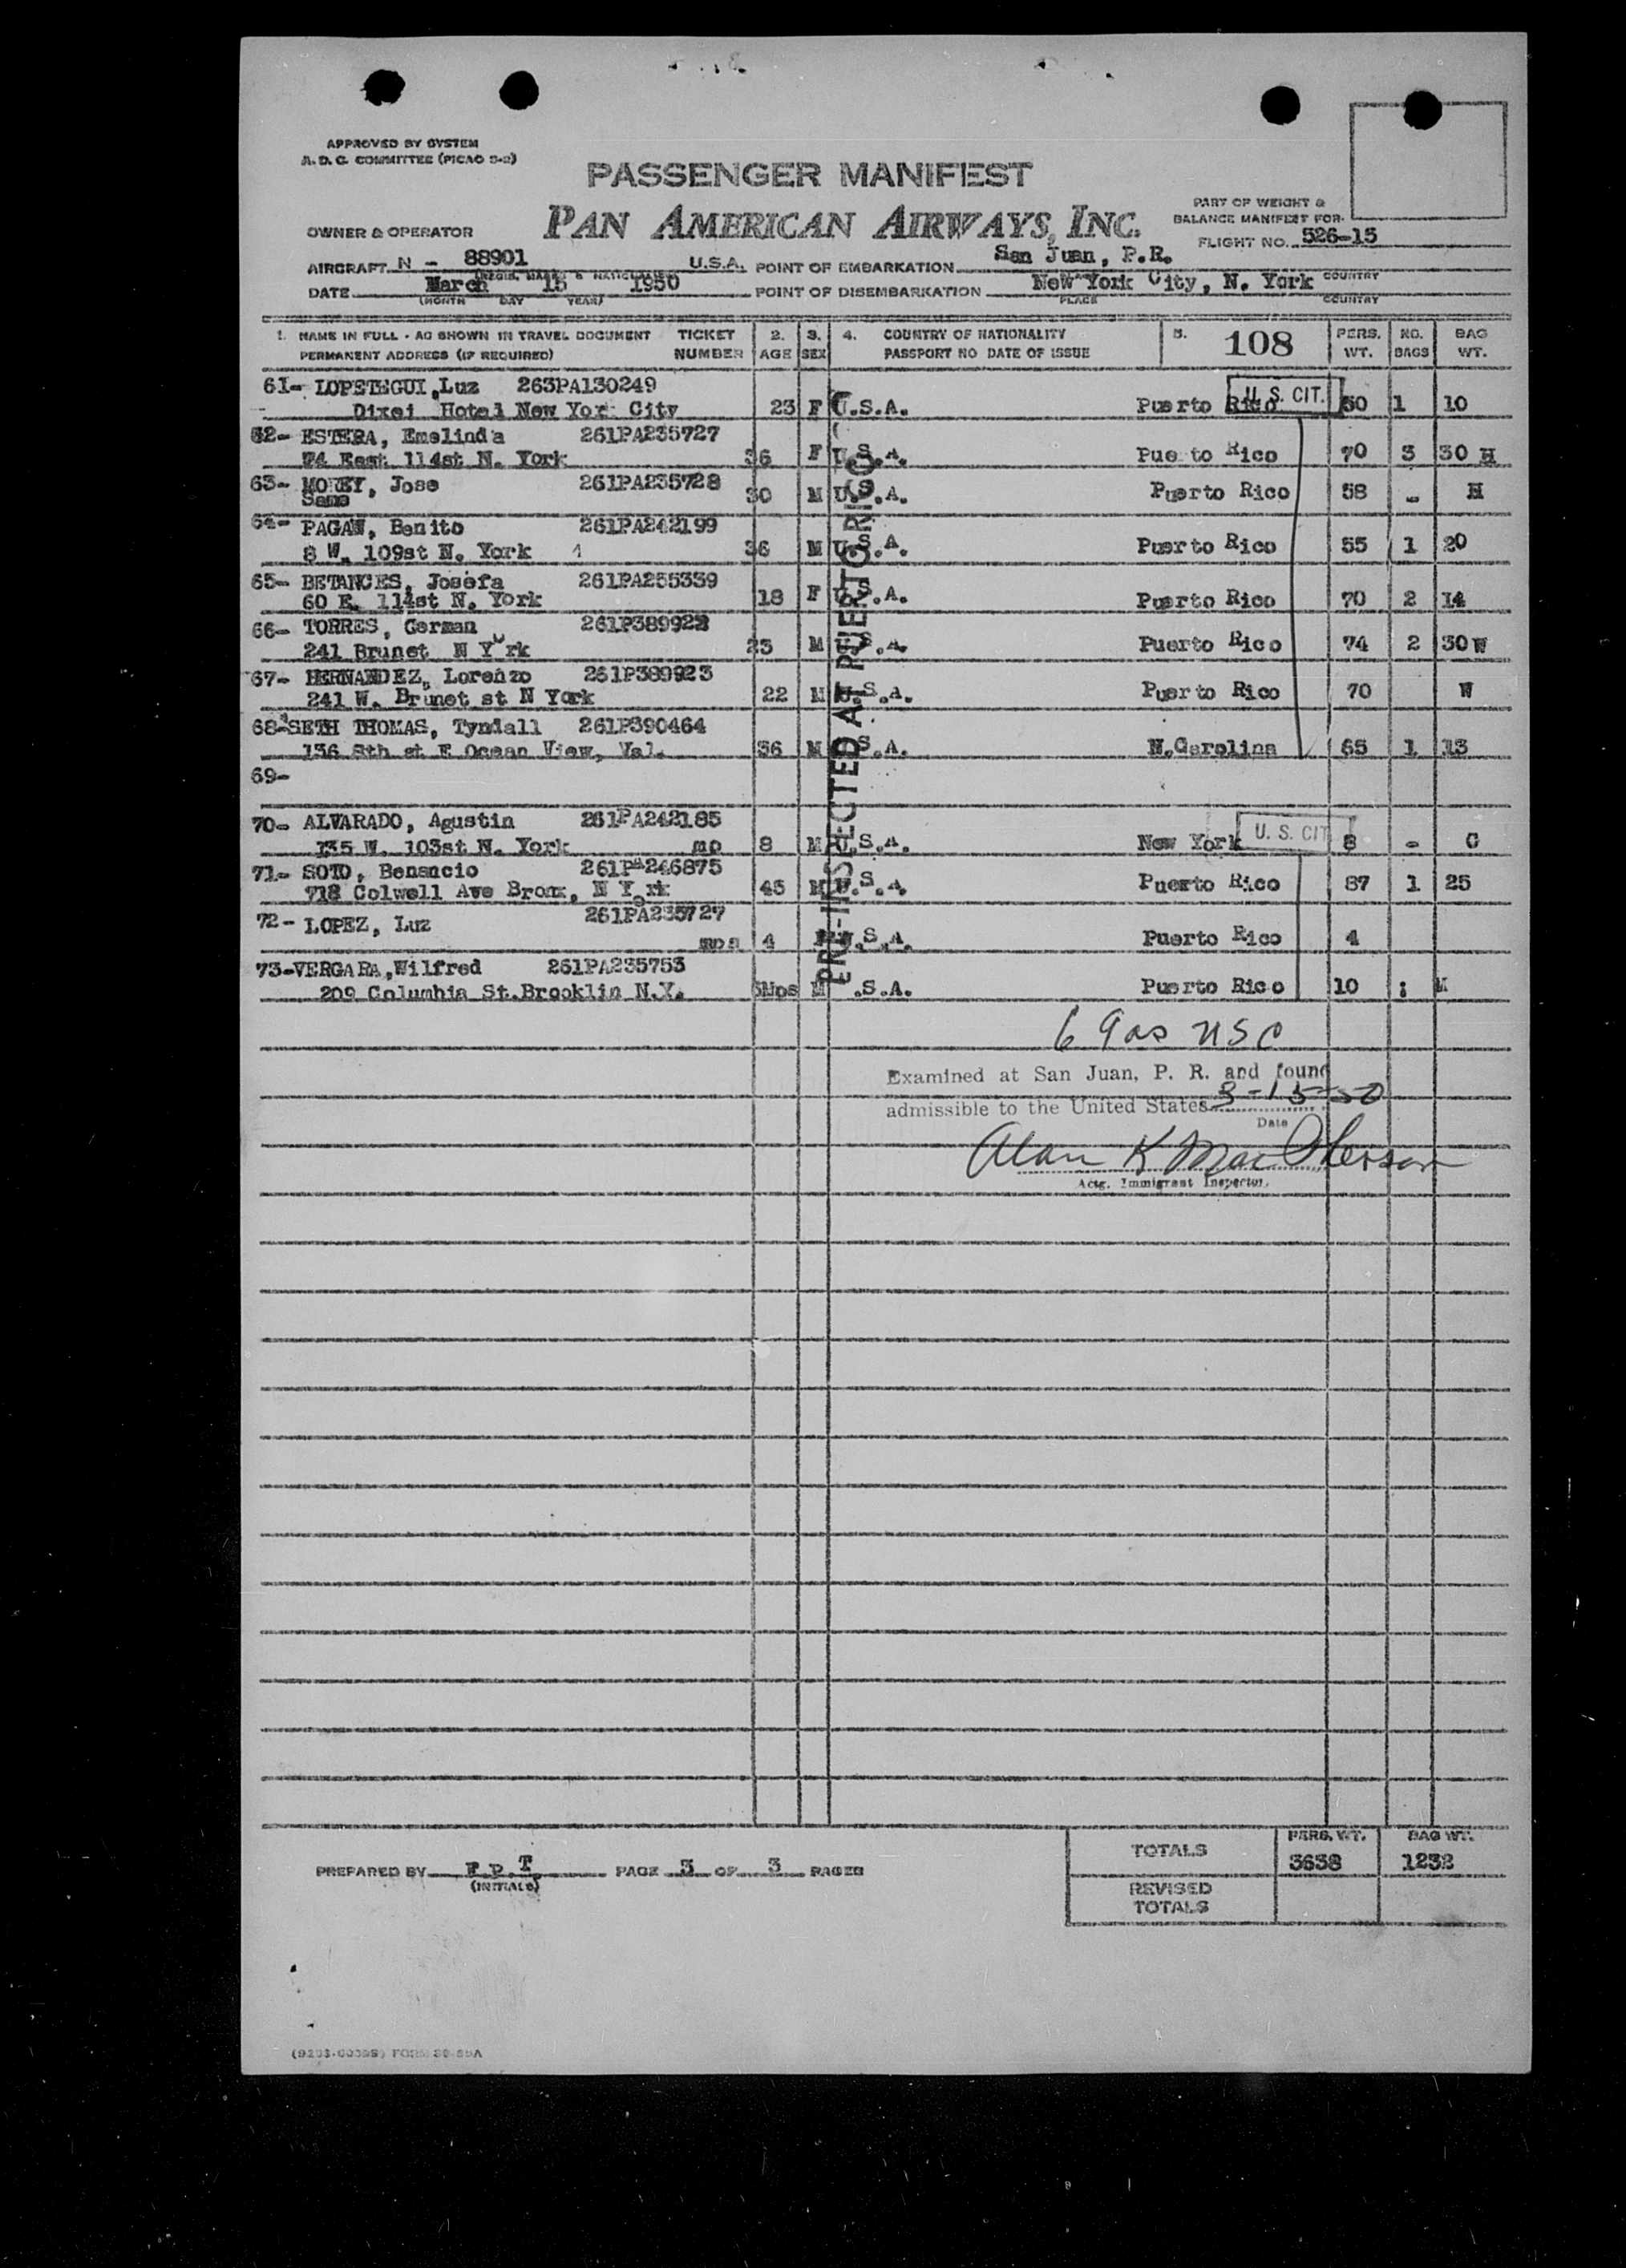 APPROVED BY SYSTEM
A. D. C. COMMITTEE (PICAO 5-2)
PASSENGER MANIFEST
PAN AMERICAN AIRWAYS, INC.
PART OF WEIGHT &
BALANCE MANIFEST FOR
OWNER & OPERATOR
FLIGHT NO. 526-15
AIRCRAFT N - 88901 U.S.A. POINT OF EMBARKATION San Juan, P.R.
DATE March 15 1950 POINT OF DISEMBARKATION New York City, N. York COUNTRY
(MONTH DAY YEAR) PLACE COUNTRY
1. NAME IN FULL - AS SHOWN IN TRAVEL DOCUMENT TICKET 2. 3. 4. COUNTRY OF NATIONALITY 5. 108 PERS. NO. BAG
PERMANENT ADDRESS (IF REQUIRED) NUMBER AGE SEX PASSPORT NO DATE OF ISSUE WT. BAGS WT.
61- LOPETEGUI, Luz 263PA130249
Dixei Hotel New Yor City 23 F U.S.A. Puerto Rico U. S. CIT. 50 1 10
62- ESTERA, Emelinda 261PA235727
74 East 114st N. York 36 F U.S.A. Pue to Rico 70 3 30 H
63- MOREY, Jose 261PA235728
Same 30 M U.S.A. Puerto Rico 58 - H
64- PAGAN, Benito 261PA242199
8 W. 109st N. York 36 M U.S.A. Puerto Rico 55 1 20
65- BETANCES, Josefa 261PA255339
60 E. 114st N. York 18 F U.S.A. Puerto Rico 70 2 14
66- TORRES, German 261P389922
241 Brunet N Y rk 23 M U.S.A. Puerto Rico 74 2 30 W
67- HERNANDEZ, Lorenzo 261P389923
241 W. Brunet st N York 22 M U.S.A. Puerto Rico 70 W
68- SETH THOMAS, Tyndall 261P390464
136 8th st E Ocean View, Val. 36 M U.S.A. N.Carolina 65 1 13
69-
70- ALVARADO, Agustin 261PA242185
135 W. 103st N. York 8 M U.S.A. New York U. S. CIT 8 - C
71- SOTO, Benancio 261PA246875
718 Colwell Ave Bronx, N York 45 M U.S.A. Puerto Rico 87 1 25
72- LOPEZ, Luz 261PA235727
4 U.S.A. Puerto Rico 4
73-VERGARA, Wilfred 261PA235753
209 Columbia St. Brooklin N.Y. M .S.A. Puerto Rico 10
PRE-INSPECTED AT PUERTO RICO
Examined at San Juan, P. R. and found
admissible to the United States 3-15-50
Date
Alan K MacPherson
Actg. Immigrant Inspector.
TOTALS PERS. WT. 3638 BAG WT. 1232
REVISED
TOTALS
PREPARED BY PAGE 3 OF 3 PAGES
(INITIALS)